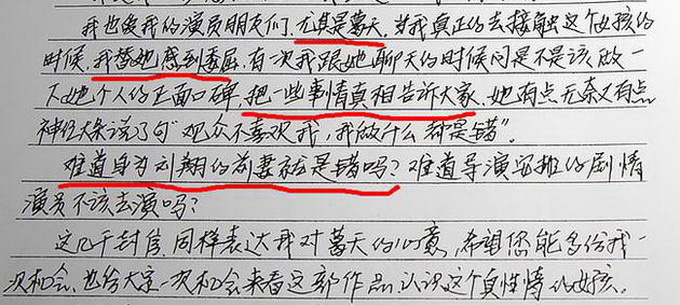 我也像我的演员朋友们,尤其是葛天,当我真正的去接触这个女孩的
时候,我替她感到委屈,有次我跟她聊天的时候问是不是该做一
下她个人的正面口碑,把一些事情真相告诉大家,她有点无奈又有点
神经大条说了句"观众不喜欢我,我做什么都是错"。
难道身为刘翔的前妻就是错吗?难道导演安排的剧情
演员不该去演吗?
这几千封信,同样表达我对葛天的心意,希望您能多给我一
次机会,也给大家一次机会来看这部作品,认识这个真性情的女孩。